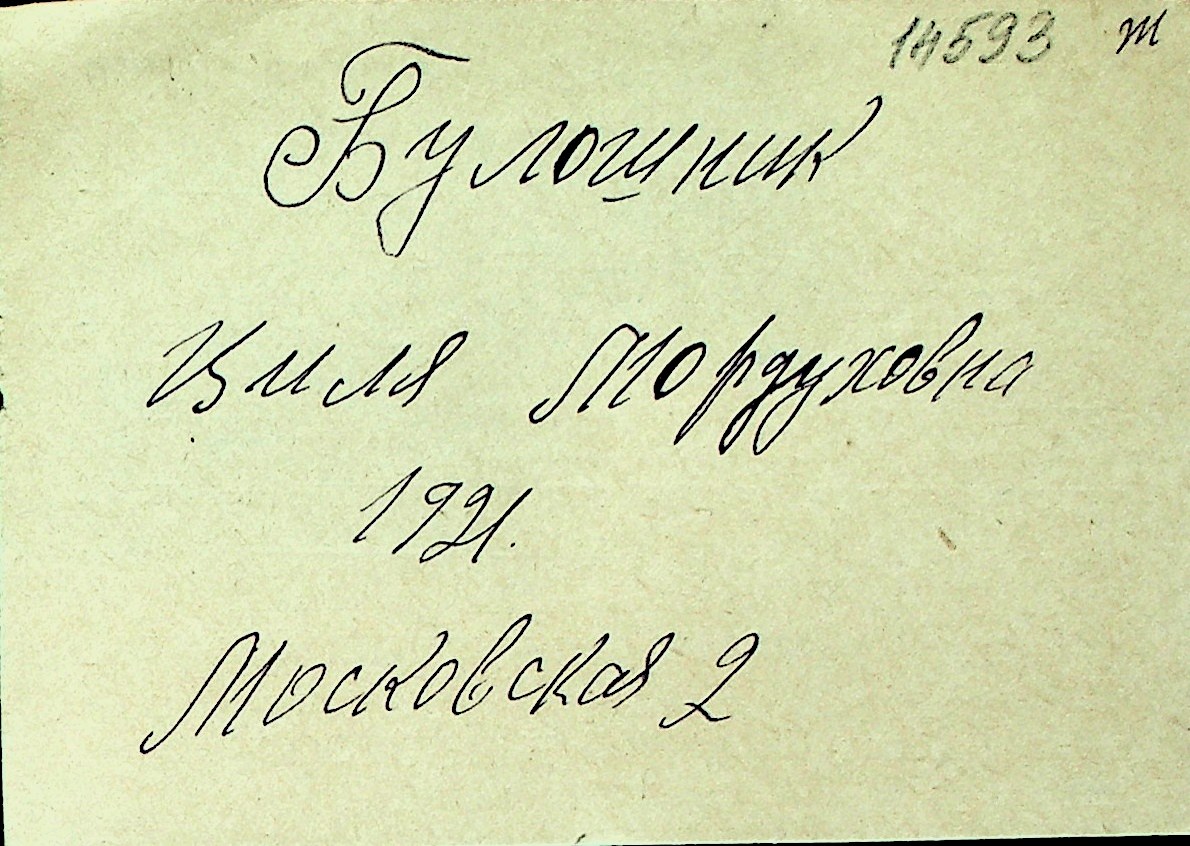 14593 т
Булошник
Циля Мордуховна
1921.
Московская 2